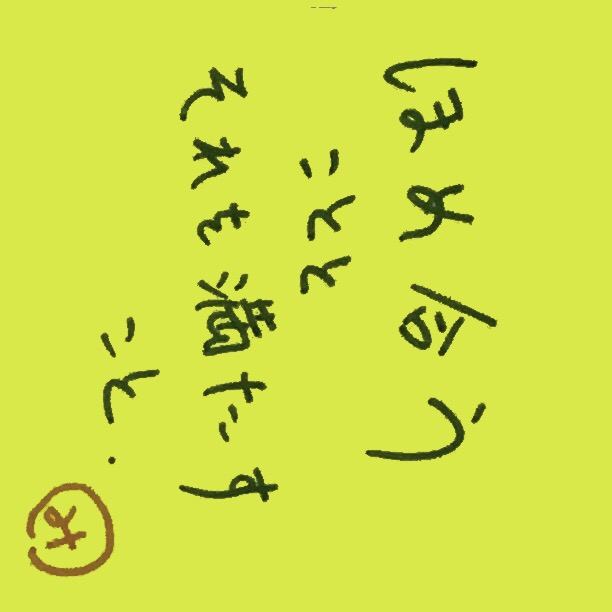 ほめ合う
ことと
それを満たす
こと.